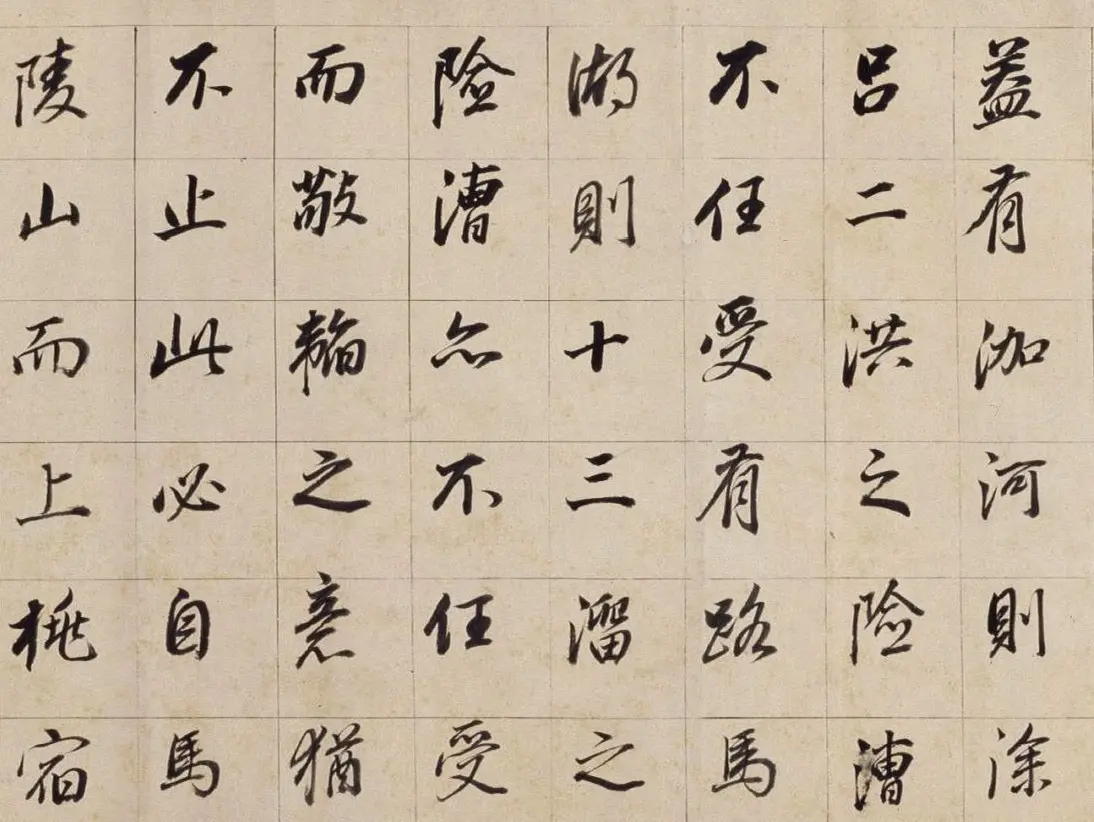 蓋有泇河則徐
呂二洪之險漕
不任受有路馬
湖則十三溜之
險漕亦不任受
而敬韜之意猶
不止此必自馬
陵山而上桃宿